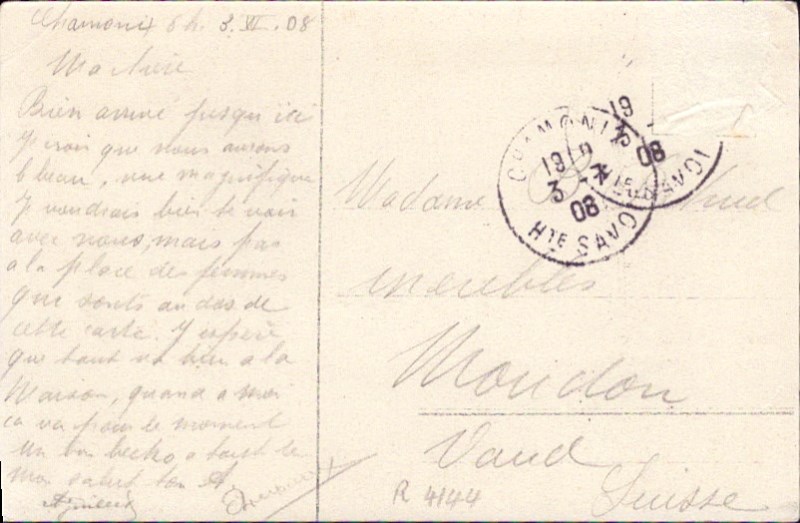 Chamonix 6 h. 3. VI. 08
Ma chère
Bien arrivé jusqu'ici
J'crois que nous aurons
b beau, vue magnifique
J voudrais bien te voir
avec nous, mais pas
a la place des femmes
que sont au dos de
cette carte. J'espère
que tout va bien a la
Maison, quand a moi
ca va pour le moment
un bon becko a tout le
mon salut ton A.
CHAMONIX
19
3
08
Hte SAVOIE
19
08
Hte SAVOIE
Madame
meubles
Moudon
Vaud
Suisse
R 4144